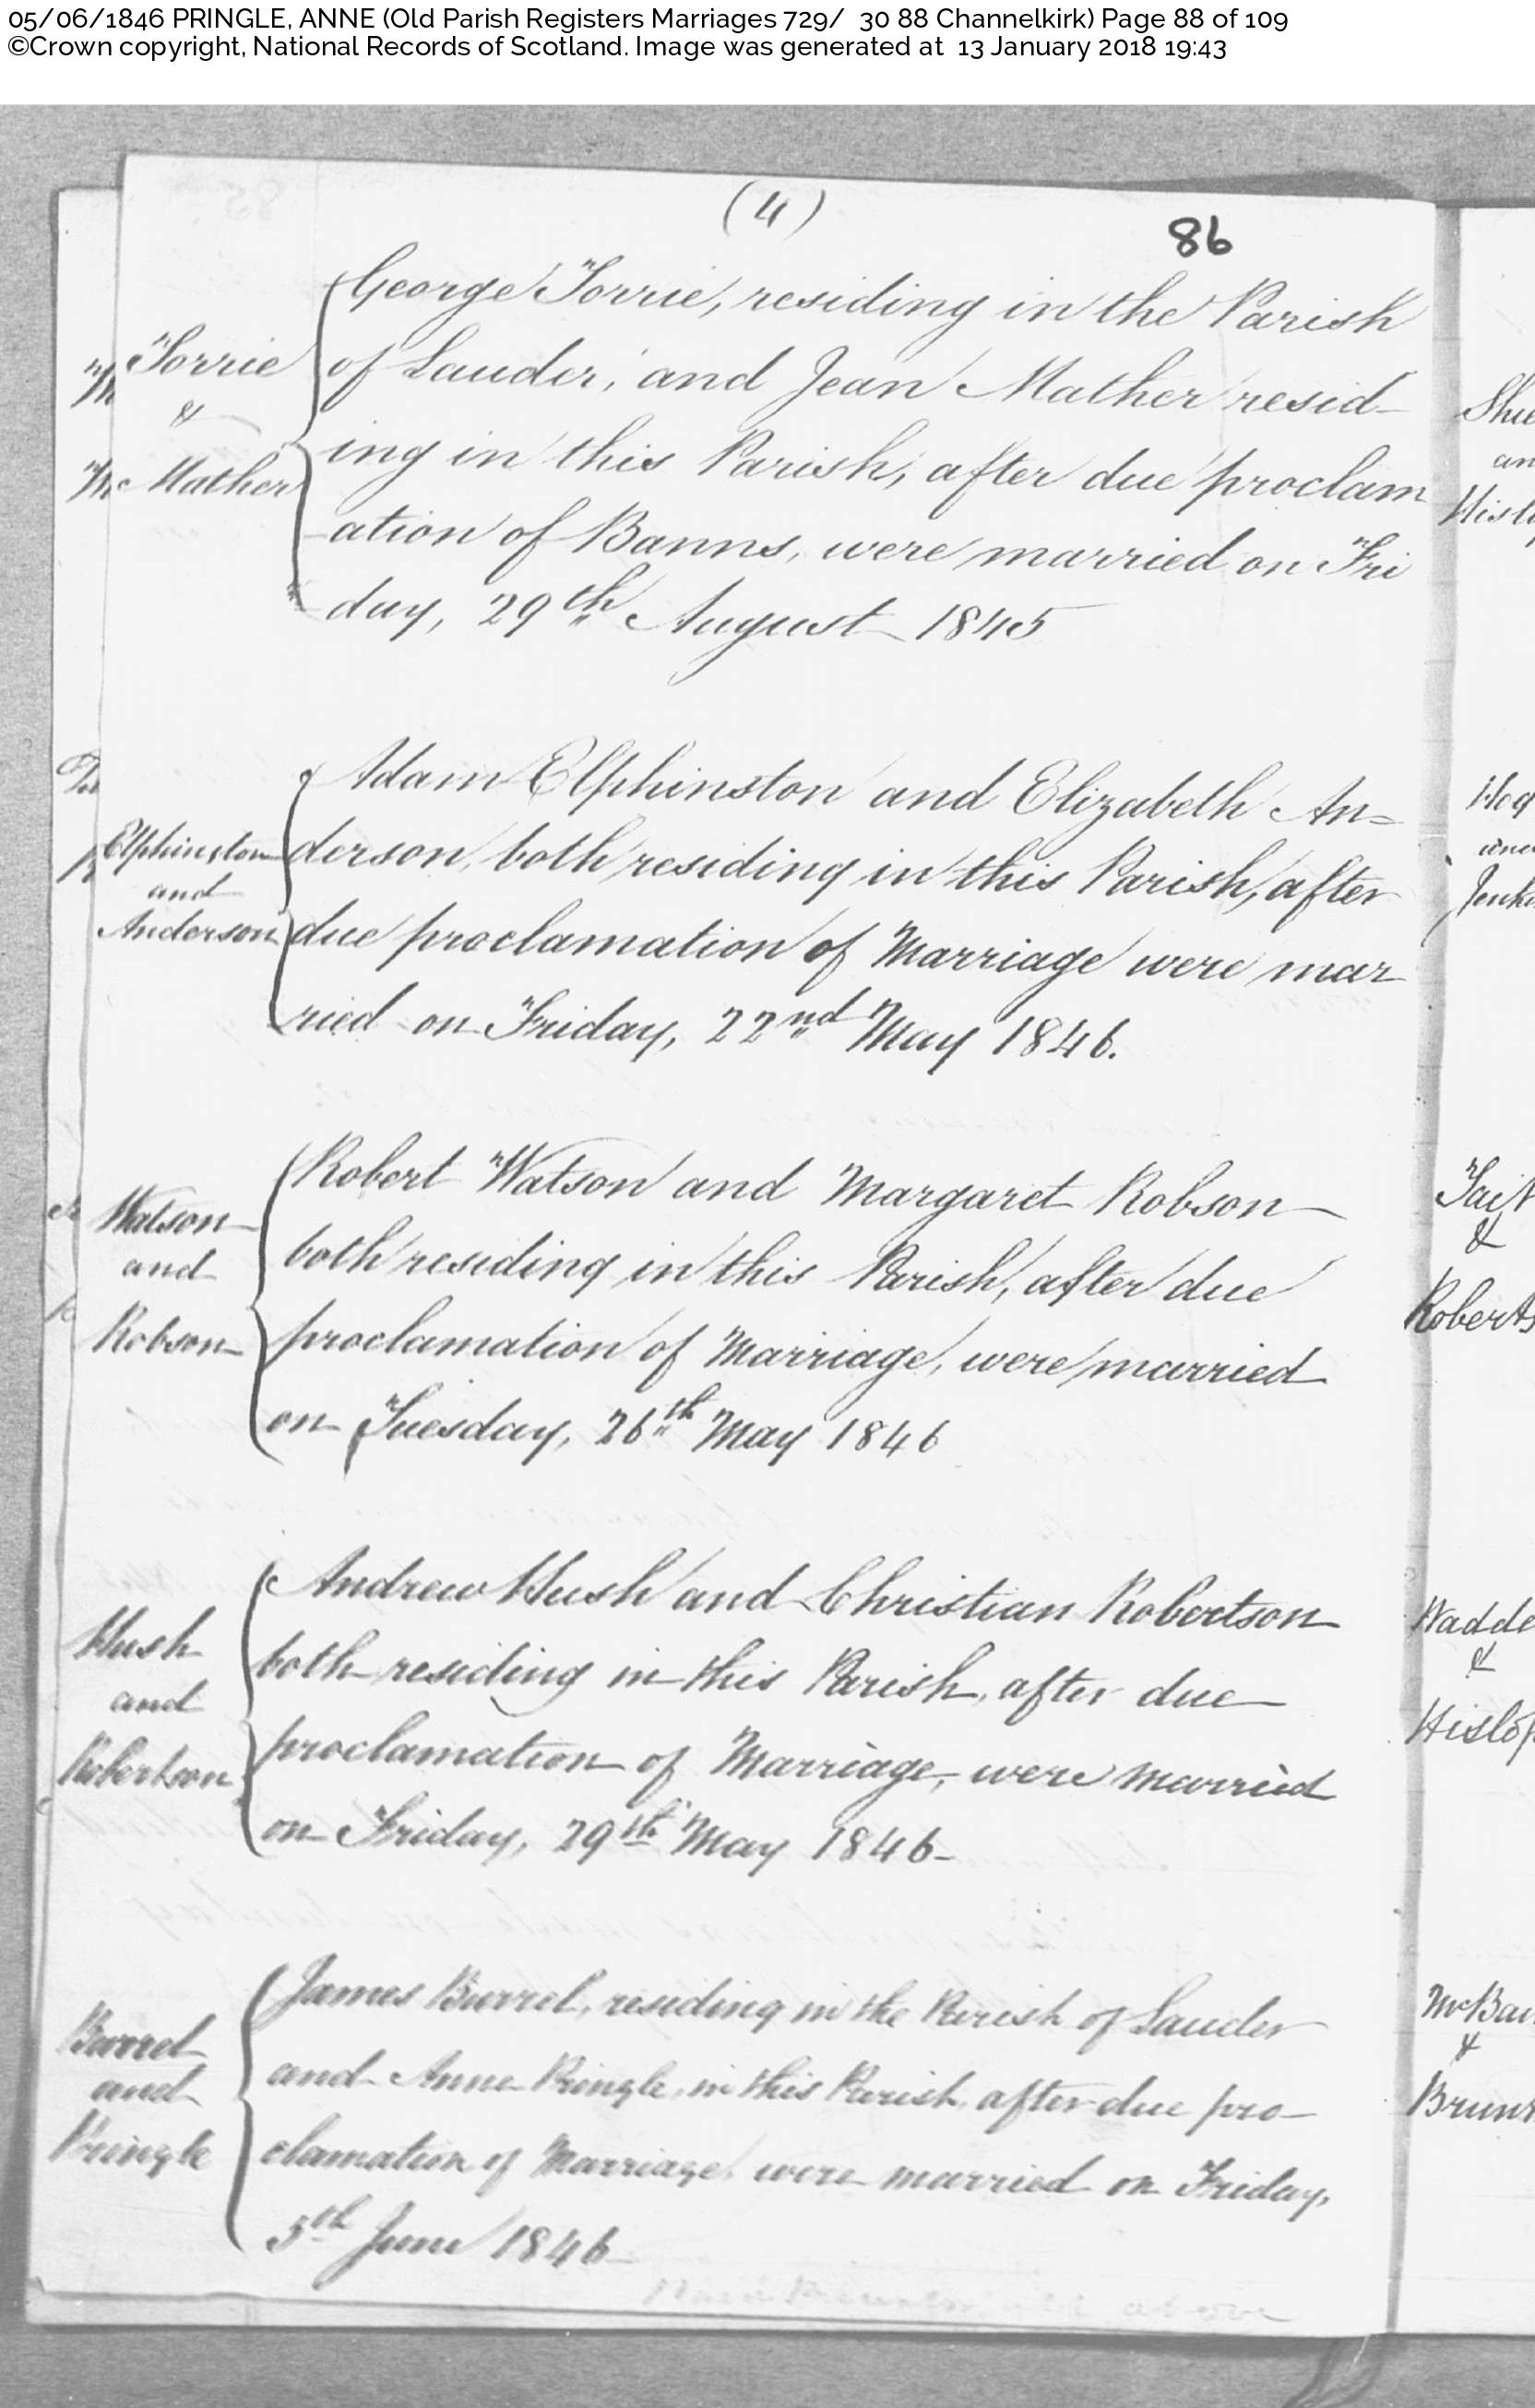 05/06/1846 PRINGLE, ANNE (Old Parish Registers Marriages 729/ 30 88 Channelkirk) Page 88 of 109
©Crown copyright, National Records of Scotland. Image was generated at 13 January 2018 19:43
(4)
86
Torrie
&
Mather
George Torrie, residing in the Parish
of Lauder, and Jean Mather resid-
ing in this Parish, after due proclam
-ation of Banns, were married on Fri
day, 29th August 1845
Elphinston
and
Anderson
Adam Elphinston and Elizabeth An=
derson, both residing in this Parish, after
due proclamation of Marriage were mar
ried on Friday, 22nd May 1846.
Watson
and
Robson
Robert Watson and Margaret Robson
both residing in this Parish, after due
proclamation of Marriage, were married
on Tuesday, 26th May 1846
Hush
and
Robertson
Andrew Hush and Christian Robertson
both residing in this Parish, after due
proclamation of Marriage, were married
on Friday, 29th May 1846-
Burrel
and
Pringle
James Burrel, residing in the Parish of Lauder
and Anne Pringle, in this Parish, after due pro-
clamation of Marriage, were married on Friday,
5th June 1846
Shie
an
Hisl
Hog
and
Jenki
Tait
&
Roberts
Wadde
&
Hislop
McBai
&
Brun